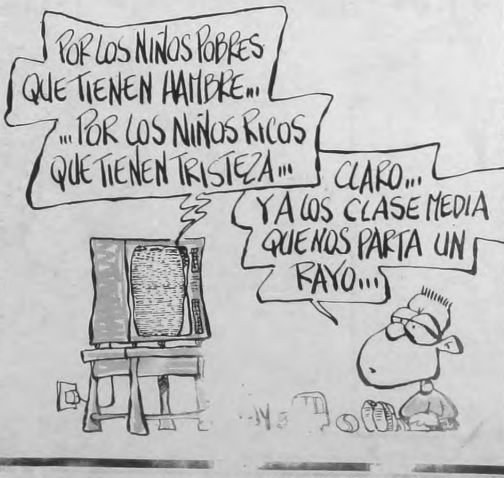 POR LOS NIÑOS POBRES
QUE TIENEN HAMBRE...
... POR LOS NIÑOS RICOS
QUE TIENEN TRISTEZA...
CLARO...
Y A LOS CLASE MEDIA
QUE NOS PARTA UN
RAYO...